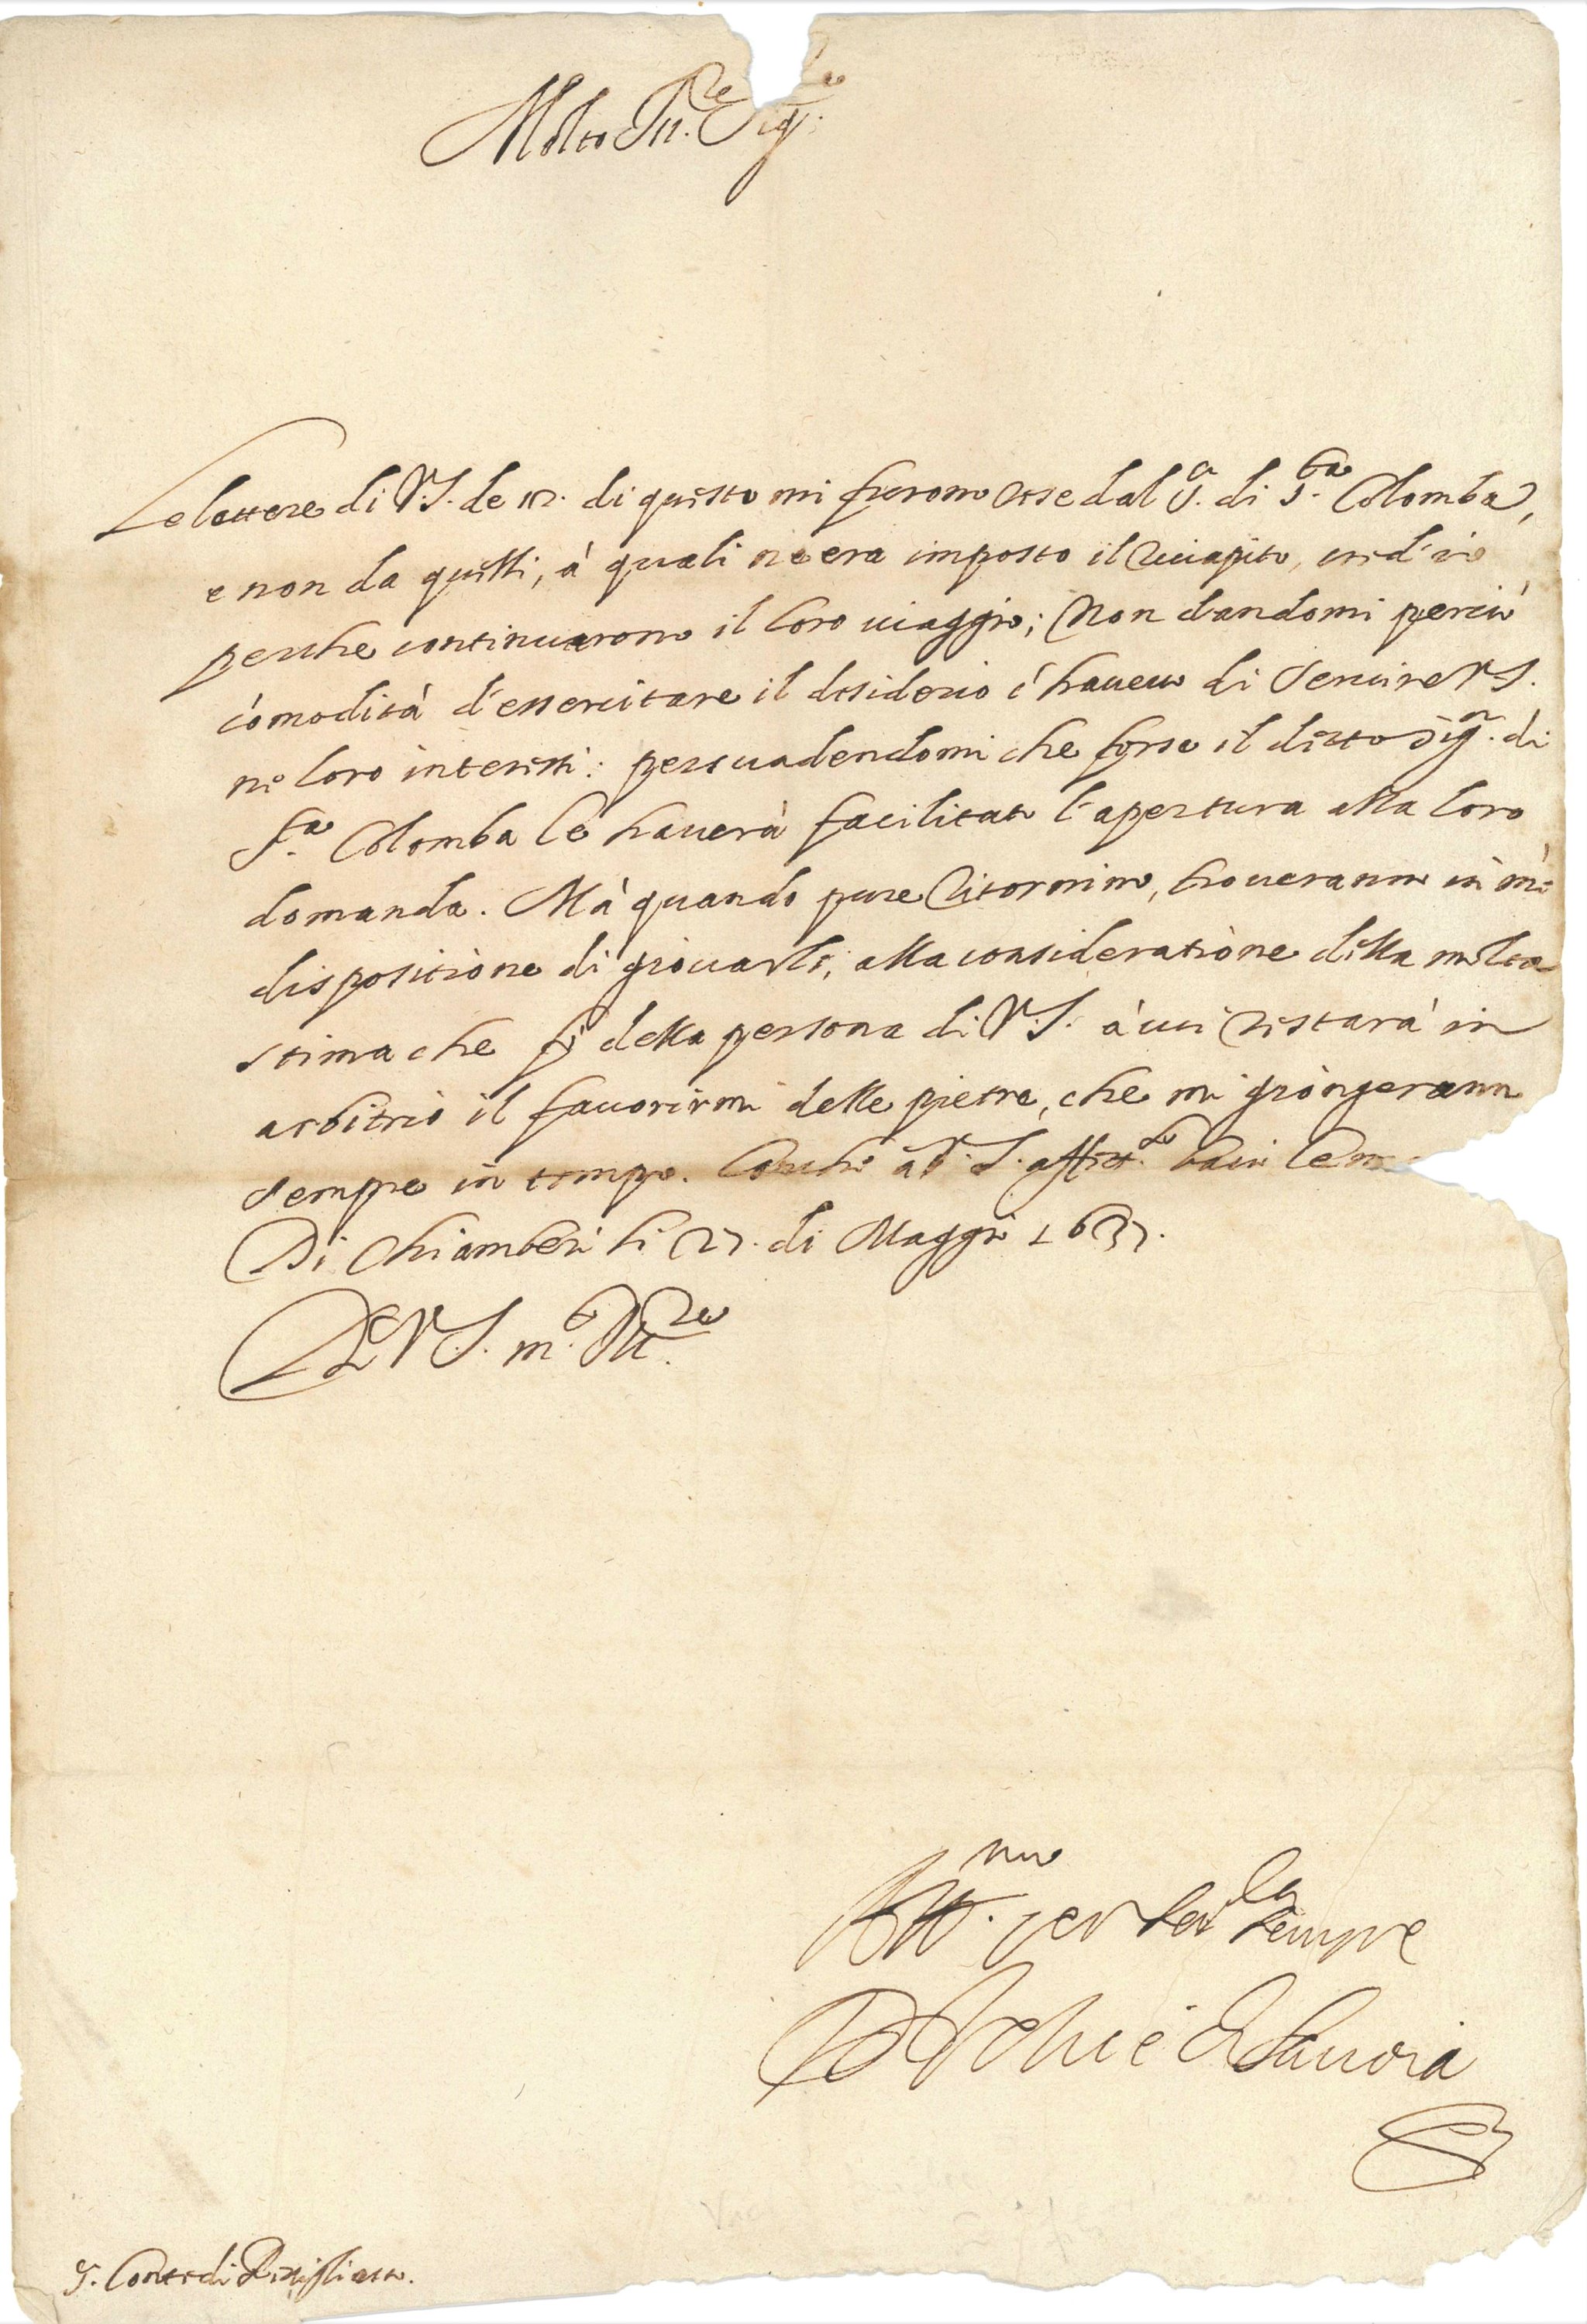 Molto Ill.re Sig.re
Le lettere di V.S. de 17. di questo mi furono rese dal S.r di S.ta Colomba,
e non da quelli, à quali ne era imposto il ricapito, cred'io
perche continuarono il loro uiaggio; Non dandomi perciò
còmodità d'essercitare il desiderio c'haueuo di seruire V.S.
ne loro interessi: persuadendomi che forse il detto Sig.r di
S.ta Colomba le hauerà facilitato l'apertura alla loro
domanda. Mà quando pure ritornino, troueranno in me
dispositione di giouarli, alla consideratione della molta
stima che fò della persona di V.S. à cui restarà in
arbitrio il fauorirmi delle pietre, che mi giongeranno
sempre in tempo. Conche à V.S. affett.te bacio le m
Di Chiamberi li 27. di Maggio 1637.
Di V.S. m.to Ill.re
Aff.mo per ser.la sempre
D Felice di Sauoia
S. Conte di